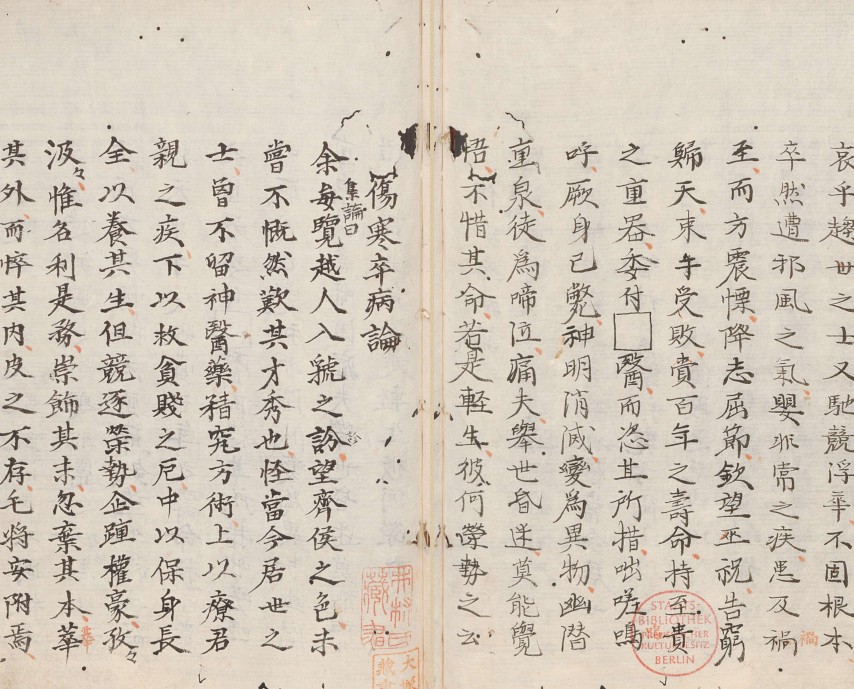 哀乎趨世之士又馳競浮華不固根本
卒然遭邪風之氣嬰非常之疾患及禍
禍
至而方震慄降志屈節欽望巫祝告窮
歸天束手受敗賫百年之壽命持至貴
之重器委付□醫而恣其所措咄嗟嗚
呼厥身已斃神明消滅變為異物幽潛
重泉徒為啼泣痛夫舉世昏迷莫能覺
悟不惜其命若是輕生彼何榮勢之云
STAATS-
BIBLIOTHEK
KULTURBESITZ
BERLIN
傷寒卒病論
集論曰
余每覽越人入虢之訜望齊侯之色未
診
嘗不慨然歎其才秀也怪當今居世之
士曾不留神醫藥精究方術上以療君
親之疾下以救貧賤之厄中以保身長
全以養其生但競逐榮勢企踵權豪孜々
汲々惟名利是務崇飾其末忽棄其本華
華
其外而悴其内皮之不存毛將安附焉
藏書